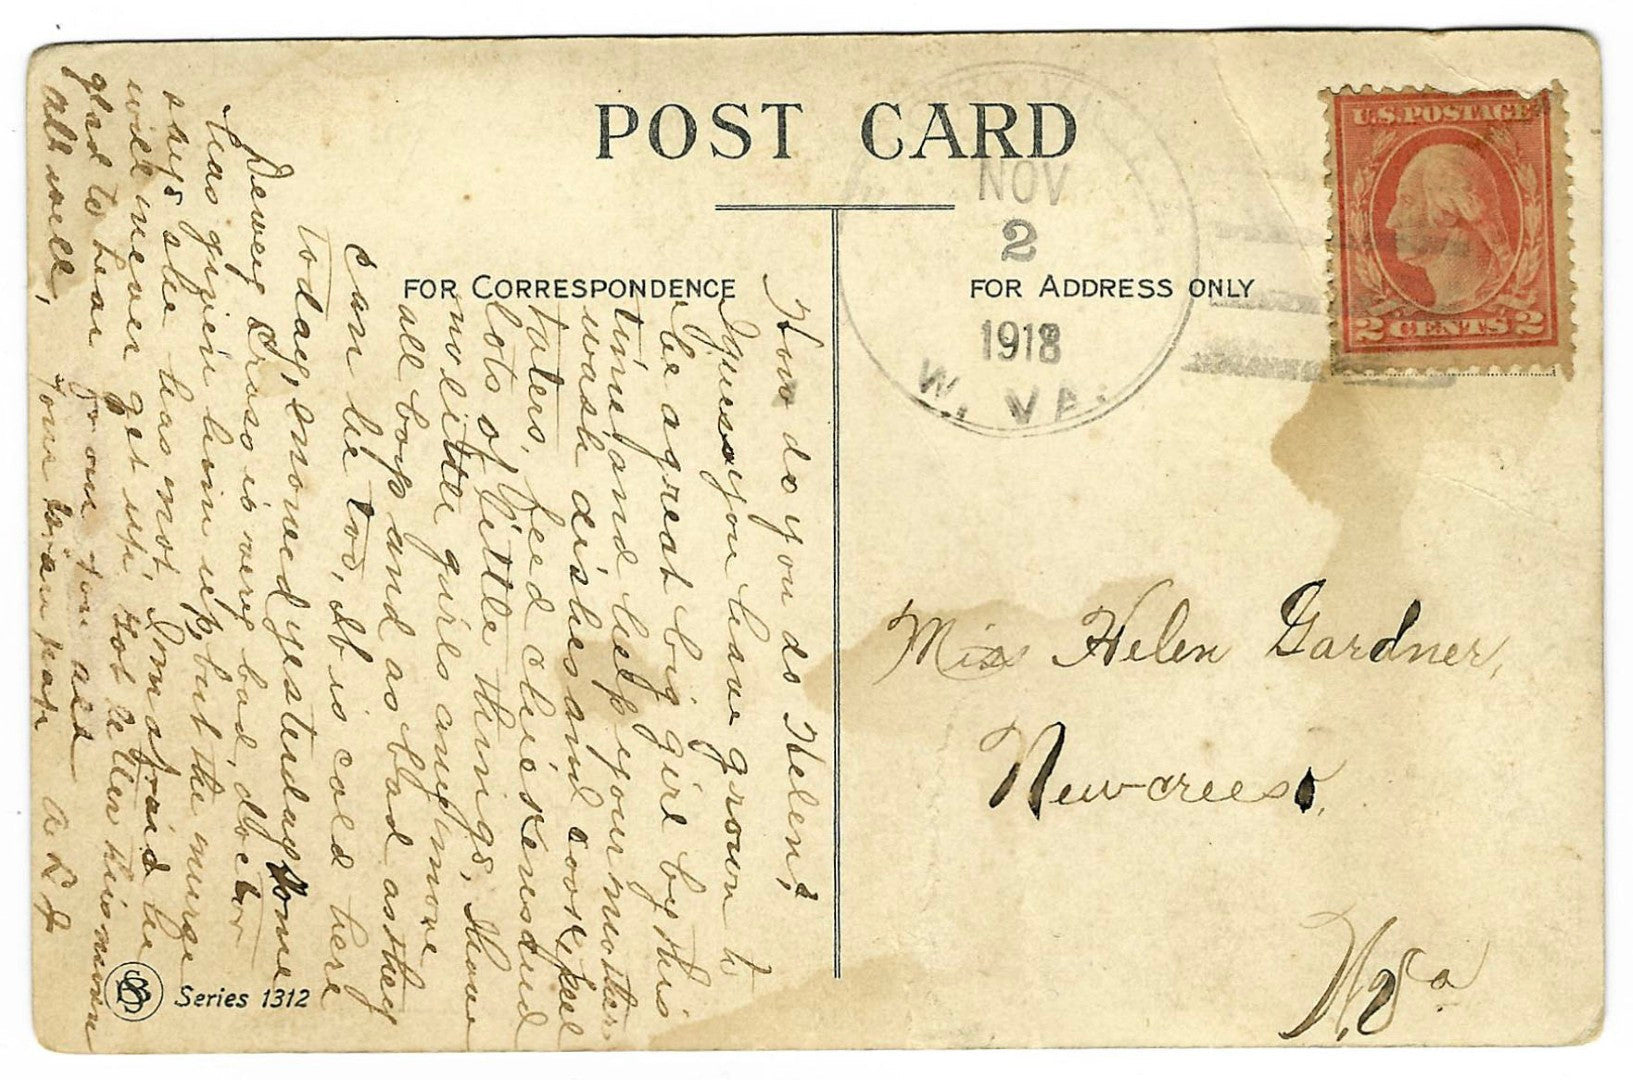 POST CARD
FOR CORRESPONDENCE
FOR ADDRESS ONLY
U.S. POSTAGE
2 CENTS 2
NOV
2
1918
W. VA.
How do you do Helen?
I guess you have grown to
be a great big girl by this
time and help your mother
wash dishes and cook, peel
taters, feed chickens and
lots of little things, I have
no little girls any more
all boys and as bad as they
can be too, It is cold here
today, snowed yesterday some
Dewey is very bad, doctor
has given him up, but the nurse
says she has not, I'm afraid he
will never get up, Got letter this morn
glad to hear from you all
all well,
Your Gran pap A L J
Series 1312
Miss Helen Gardner,
Newcreek,
W. Va